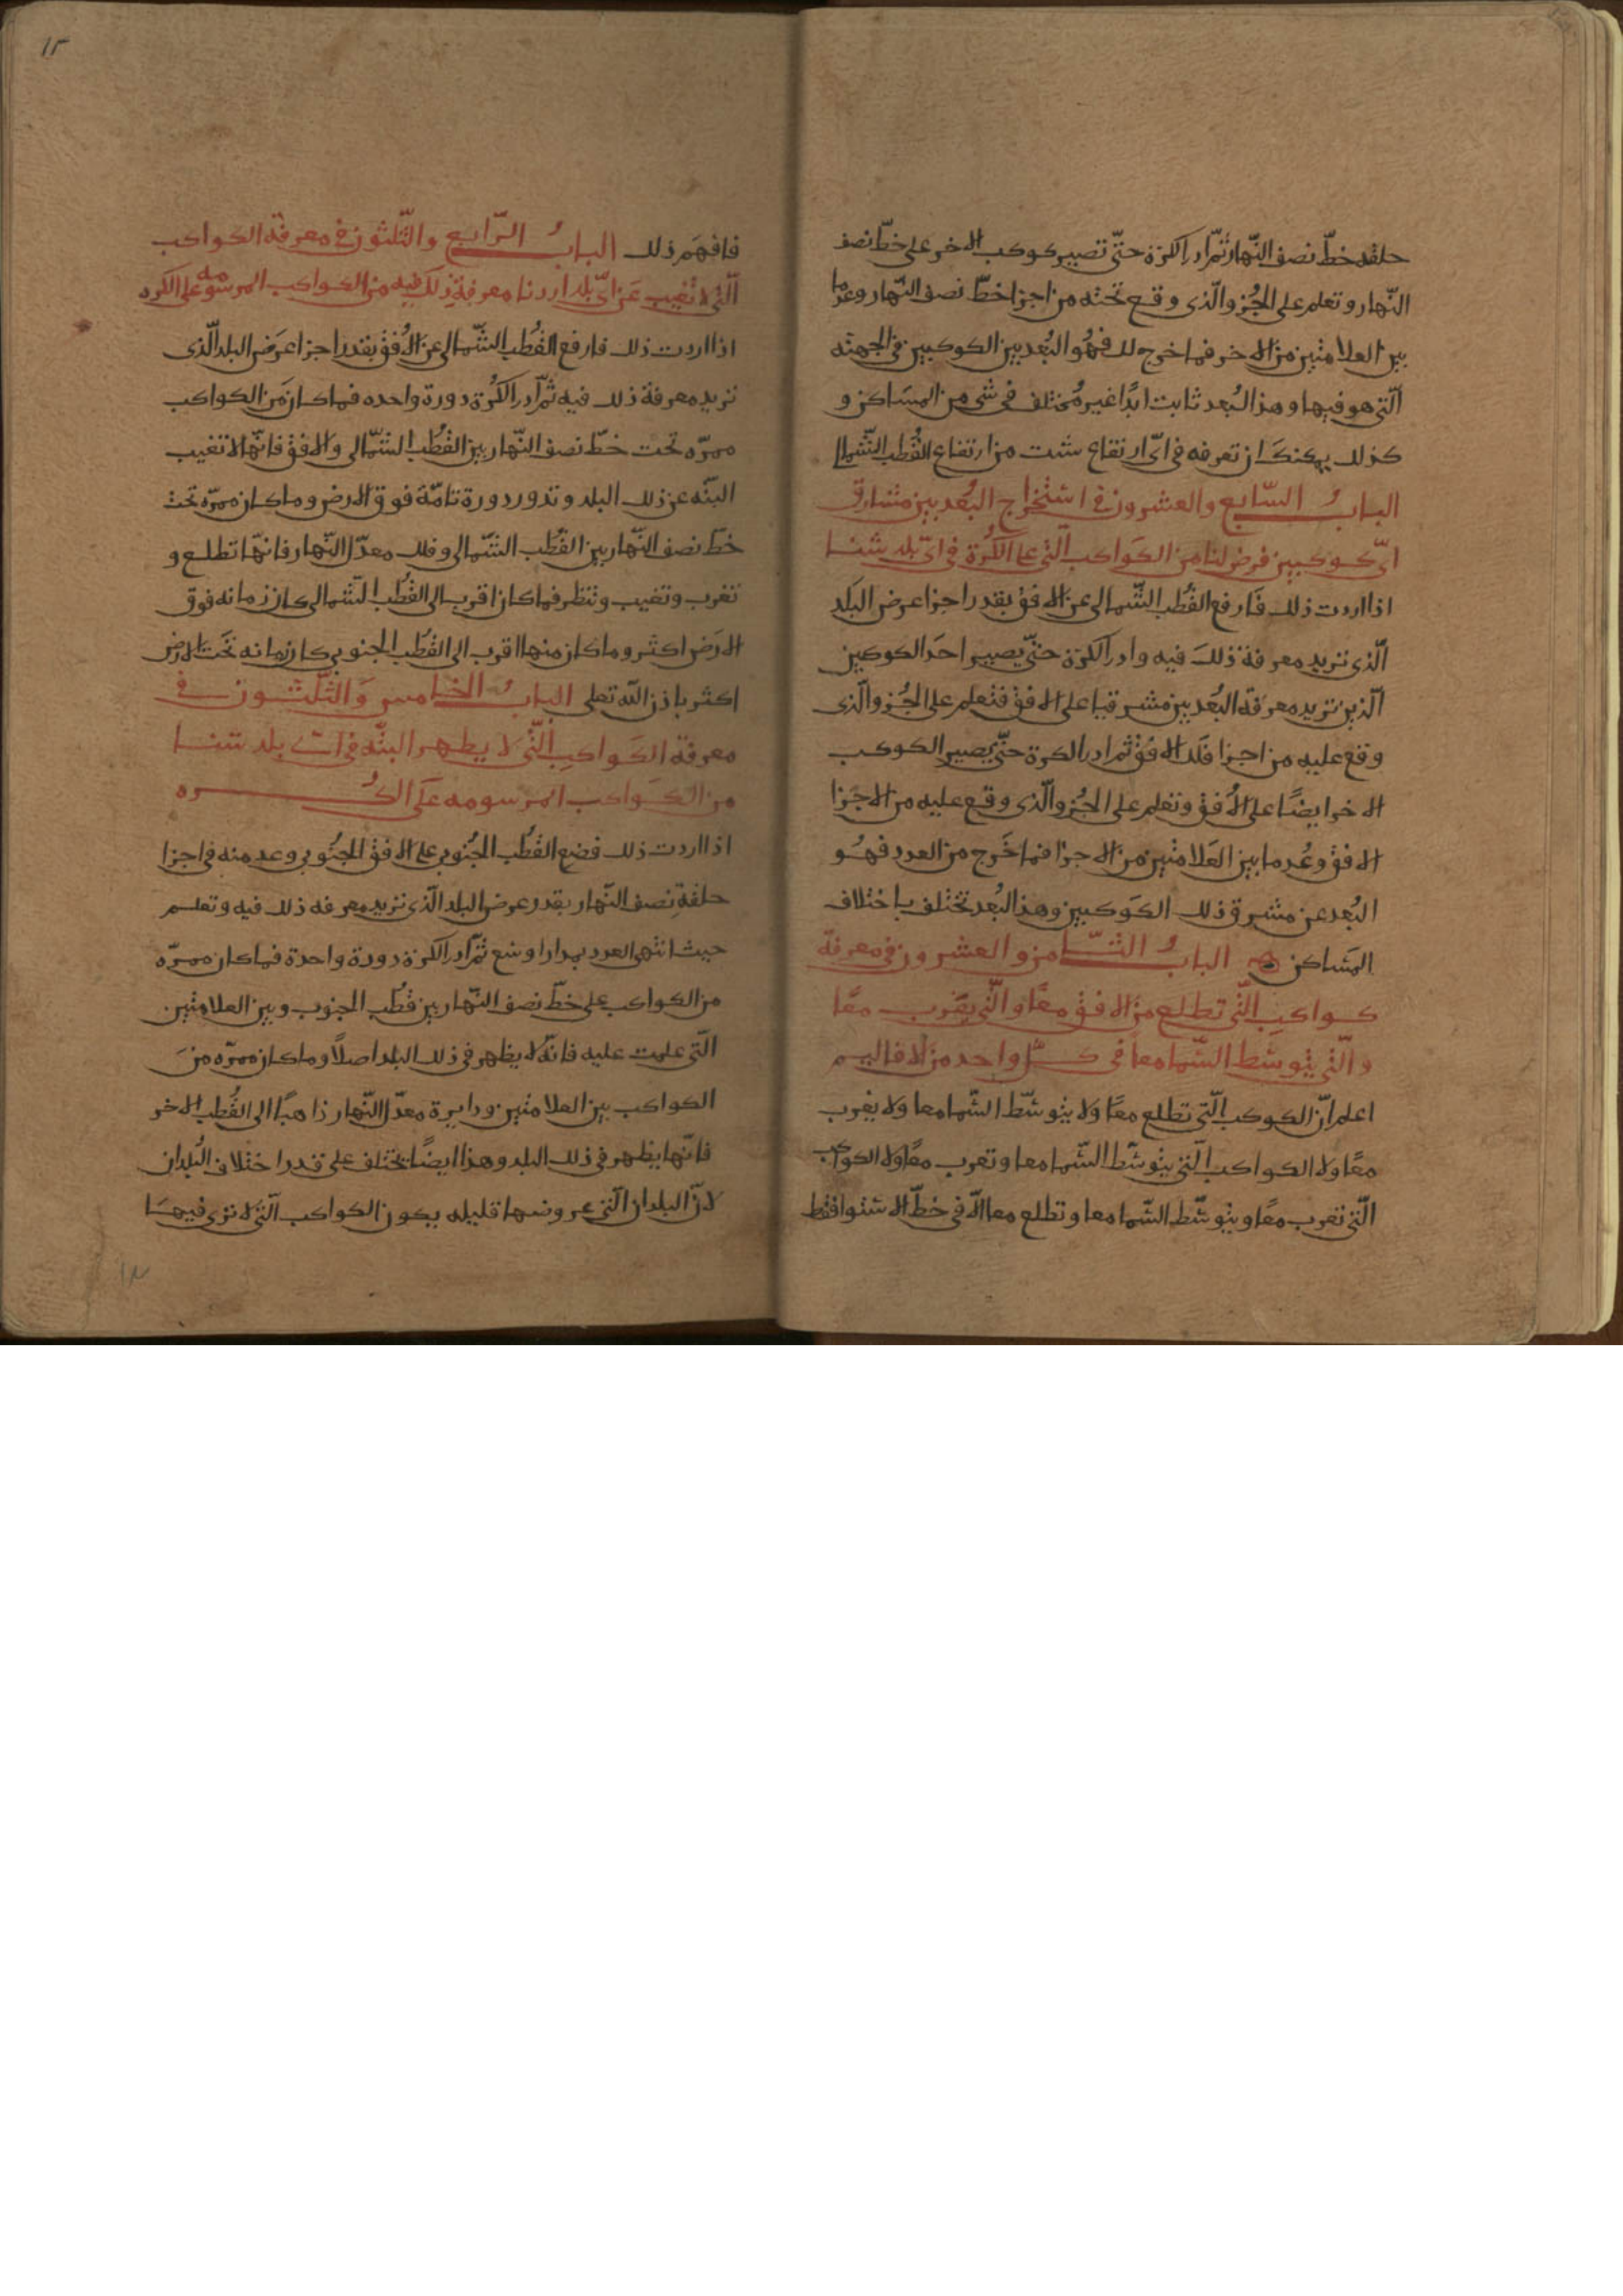 حلقه خطّ نصف النّهار ثمّ ادر الكرة حتّى تصير كوكب الاخر على خطّ نصف
النّهار وتعلم على الجُزو الّذى وقع تحته من اجزا خطّ نصف النّهار وعد ما
بين العلامتين من الاخر فما خرج لك فهُو البُعد بين الكوكبين فى الجهته
الّتى هو فيها وهذا البُعد ثابت ابدًا غير مُختلف فى شى من المسَاكن و
كذلك يمكنكَ ان تعرفه فى اىّ ارتفاع شئت من ارتفاع القُطب الشّمال
البابُ السّابع والعشرون فى استخراج البُعد بين مشارق
اىّ كوكبين فرض لنا من الكَواكب الّتى على الكُرة فى اىّ بلد شئنا
اذا اردت ذلك فَارفع القُطب الشّمالى عن الافق بقدر اجزا عرض البلَد
الّذى تريد معرفة ذلكَ فيه وادر الكرة حتّى يصير احَد الكوكبين
الّذين تريد معرَفة البُعد بين مشرقيا على الافق فتعلم على الجُزو الّذى
وقع عليه من اجزا فلَك الافُق ثم ادر الكرة حتّى يصير الكوكب
الاخر ايضًا على الأُفق وتعلم على الجُزو الّذى وقع عليه من الاجَزا
الافق وعُد ما بين العَلامتين من الاجزا فما خَرج من العدد فهُو
البُعد عن مشرق ذلك الكَوكبين وهذا البُعد تختلف باختلاف
المسَاكن ه البابُ الثّامن والعشرون فى معرفة
كواكبِ الّتى تطلع من الافق معًا والّتى يغرب معًا
والّتى يتوسّط السّما معا فى كلّ واحد من الاقاليم
اعلم انّ الكوكب الّتى تطلع معًا ولا يتوسّط السّما معا ولا يغرب
معًا ولا الكواكب الّتى يتوسّط السّما معا وتغرب معًا ولا الكواكب
الّتى تغرب معًا ويتوسّط السّما معا وتطلع معا الّا فى خطّ الاستوا فقط
١٢
فافهَم ذلك البابُ الرّابع والثّلثون فى معرفة الكواكب
الّتى لا تغيب عَن اىّ بلد اردنا معرفة ذلكَ فيه من الكواكب المرسومه على الكره
اذا اردت ذلك فارفع القُطب الشّمالى عن الأُفق بقدر اجزا عرَض البلد الّذى
تريد معرفة ذلك فيه ثمّ ادر الكُرة دورة واحده فما كان مَن الكواكب
ممرّه تحت خطّ نصف النّهار بين القُطب الشّمالى والافق فانّها لا تغيب
البتّه عن ذلك البلد وتدور دورة تامّة فوق الارض وما كان ممرّه تحت
خطّ نصف النّهار بين القُطب الشّمالى وفلك معدّل النّهار فانهّا تطلع و
تغرب وتغيب وتنظر فما كان اقرب الى القُطب الشمالى كان زمانه فوق
الارَض اكثر وما كان منها اقرب الى القُطب الجنوبى كان زمانه تحَت الارض
اكثر باذن اللّه تعلى البابُ الخامس وَالثّلثون فى
معرفة الكَواكبِ الّتى لا يظهر البتّه فى اىّ بلد شئنا
من الكَواكب المرسومه عَلى الكُره
اذا اردت ذلك فضع القُطب الجُنوبى على الافق الجنُوبى وعد منه فى اجزا
حلقةِ نصف النّهار بقدر عرض البلد الّذى تريد معرفه ذلك فيه وتعلم
حيث انتهى العدد بمدار او شع ثمّ ادر الكرة دورة واحدة فما كان ممرّه
من الكواكب على خطّ نصف النّهار بين قُطب الجنوب وبين العلامتين
الّتى علمت عليه فانّه لا يظهر فى ذلك البلد اصلًا وما كان ممرّه منَ
الكواكب بين العلامتين ودايرة معدّل النّهار ذاهبًا الى القُطب الاخر
فانّها يظهر فى ذلك البلد وهذا ايضًا يختلف على قدر اختلاف البُلدان
لانّ البلدان الّتى عروضها قليله يكون الكواكب الّتى لا ترى فيهَا